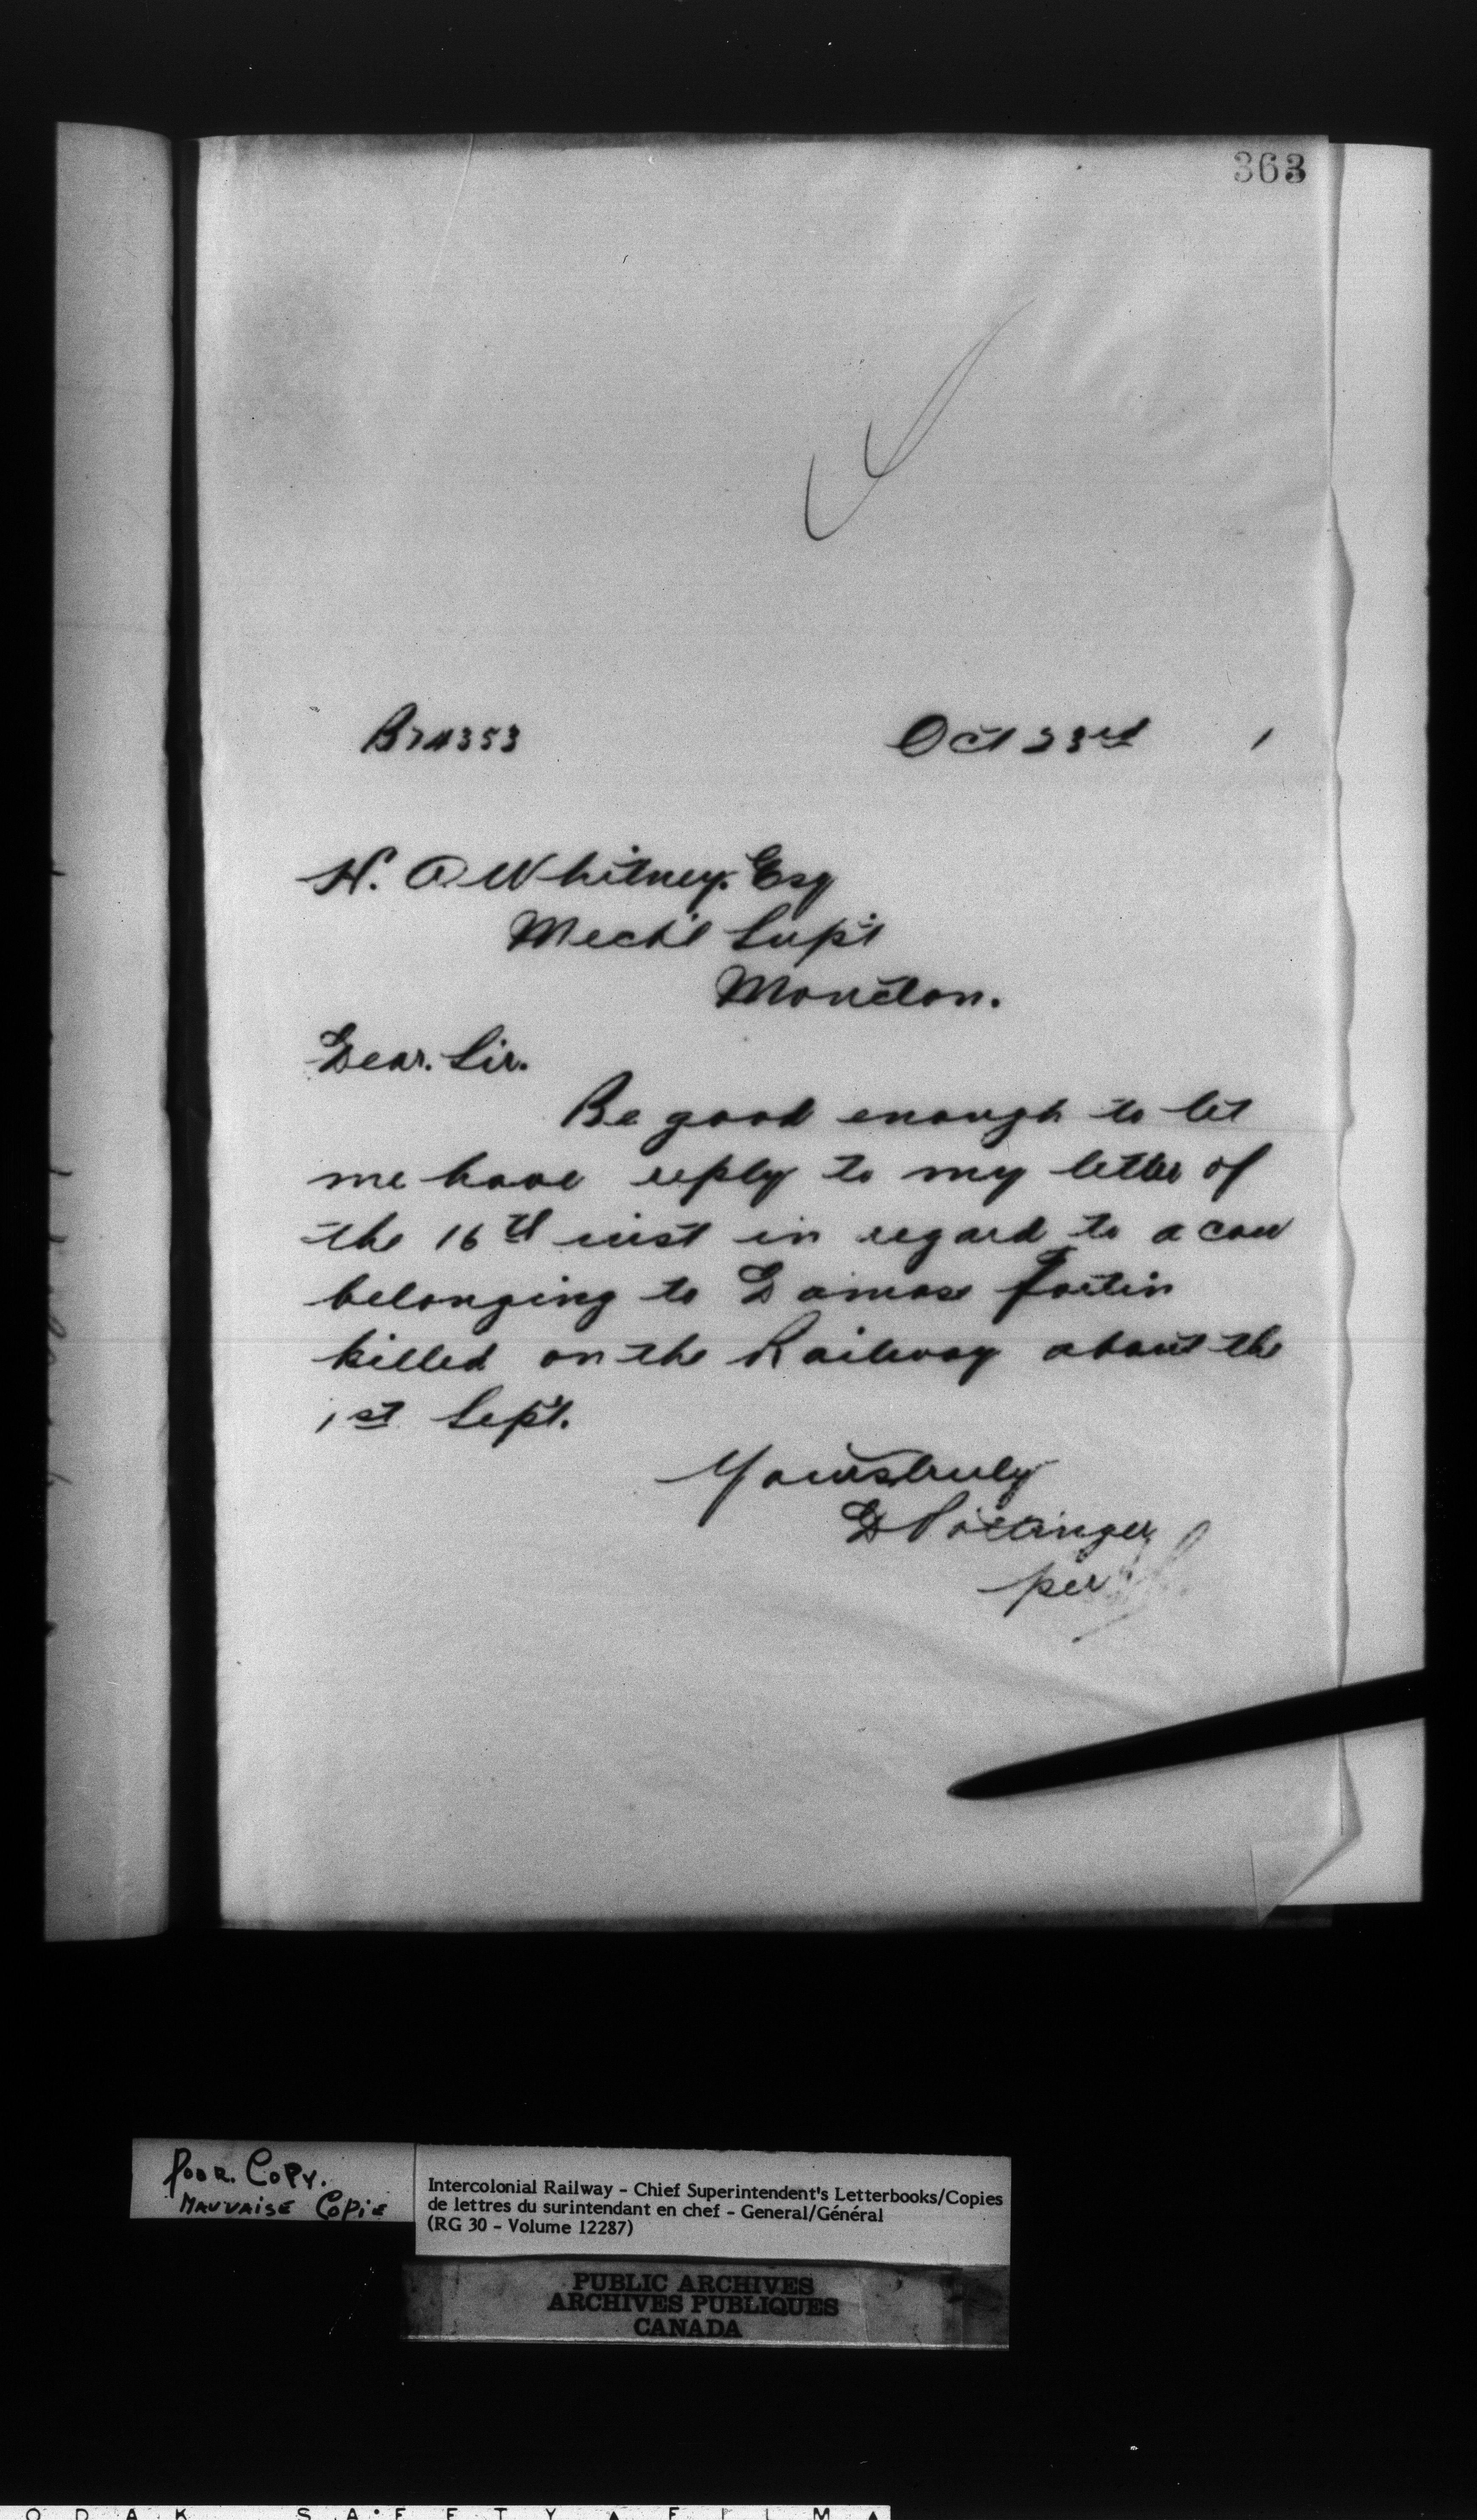 363
B74353 Oct 23rd 1
H. A Whitney. Esq
Mech'l Supt
Moncton.
Dear. Sir.
Be good enough to let
me have reply to my letter of
the 16th inst in regard to a cow
belonging to Damase Fortin
killed on the Railway about the
1st Sept.
Yours truly
D Pottinger
per
Poor. Copy.
Mauvaise Copie
Intercolonial Railway - Chief Superintendent's Letterbooks/Copies
de lettres du surintendant en chef - General/Général
(RG 30 - Volume 12287)
PUBLIC ARCHIVES
ARCHIVES PUBLIQUES
CANADA
ODAK SAFETY FILM